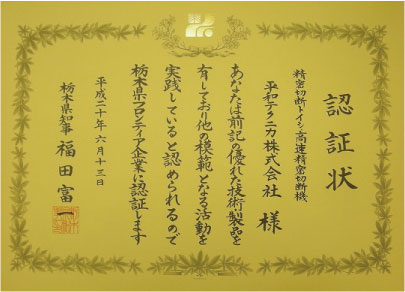 認証状
精密切断トイシ高速精密切断機
平和テクニカ株式会社 様
あなたは前記の優れた技術製品を
有しており他の模範となる活動を
実践していると認められるので
栃木県フロンティア企業に認証します
平成二十年六月十三日
栃木県知事 福田富一